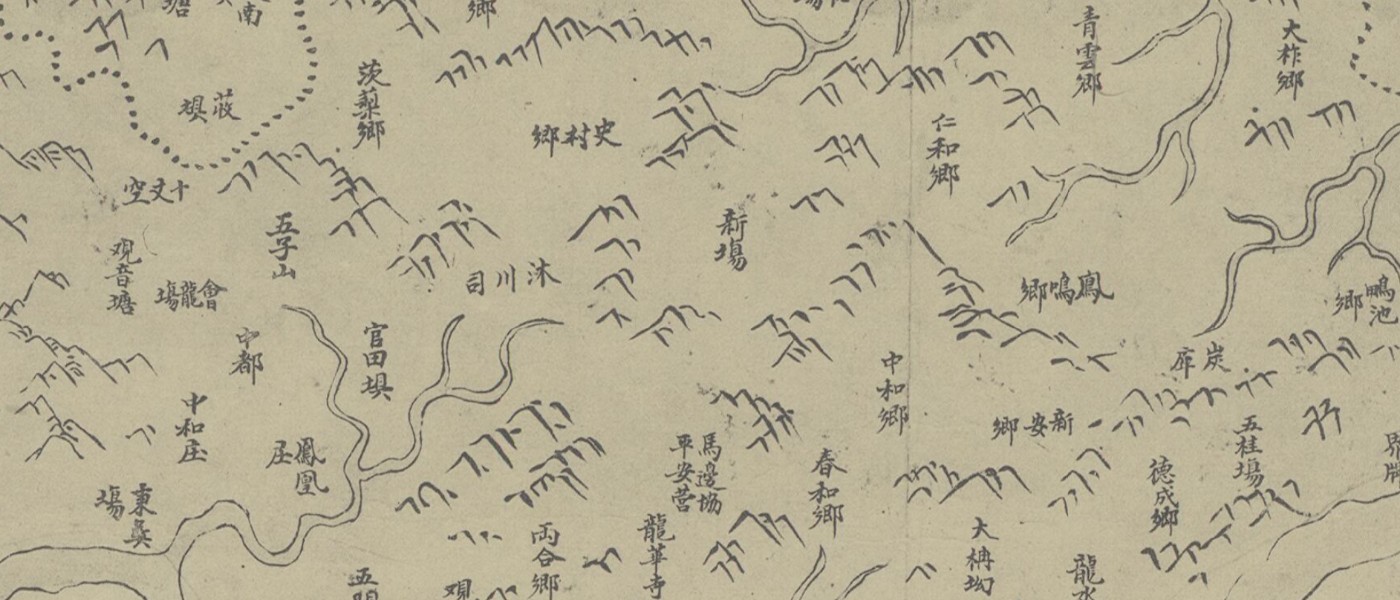 大柞鄉
青雲鄉
仁和鄉
茨藜鄉
史村鄉
新塲
沐川司
五子山
十丈空
観音塘
會龍塲
中都
官田垻
中和庄
鳳凰庄
東彛塲
鳳鳴鄉
鴨池鄉
炭庫
中和鄉
新安鄉
五桂塲
德成鄉
春和鄉
馬邊協
平安营
龍華寺
両合鄉
龍水
観
南
塘
鄉